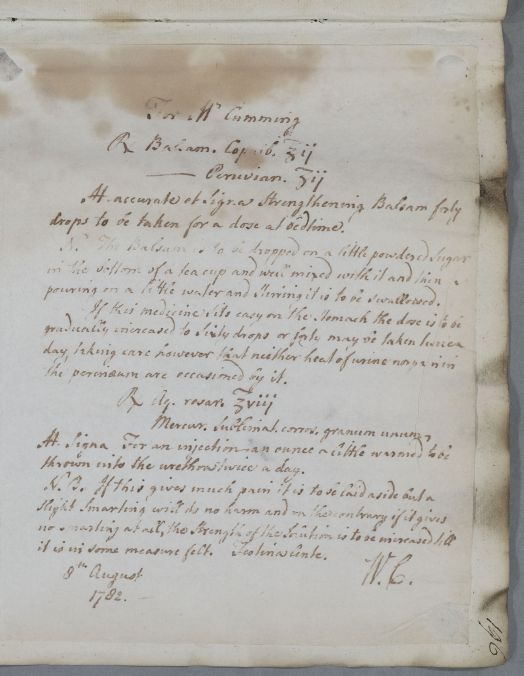 For Mr Cumming
℞ Balsam. Copaib. ℥ij
—— Peruvian. ʒij
M. accurate et Signa Strengthening Balsam forty
drops to be taken for a dose at bedtime.
N. The Balsam is to be dropped on a little powdered Sugar
in the bottom of a tea cup and well mixed with it and then
pouring on a little water and stirring it is to be swallowed.
If this medicine sits easy on the stomach the dose is to be
gradually increased to sixty drops or forty may be taken twice a
day, taking care however that neither heat of urine nor pain in
the perinæum are occasioned by it.
℞ Aq. rosar. ℥viij
Mercur. Sublimat. corros. granum unum
M. Signa For an injection an ounce a little warmed to be
thrown into the urethra twice a day.
N.B. If this gives much pain it is to be laid aside but a
slight smarting will do no harm and on the contrary if it gives
no smarting at all, the strength of the solution is to be increased till
it is in some measure felt. Festina lente.
8th August W.C.
1782.—
196